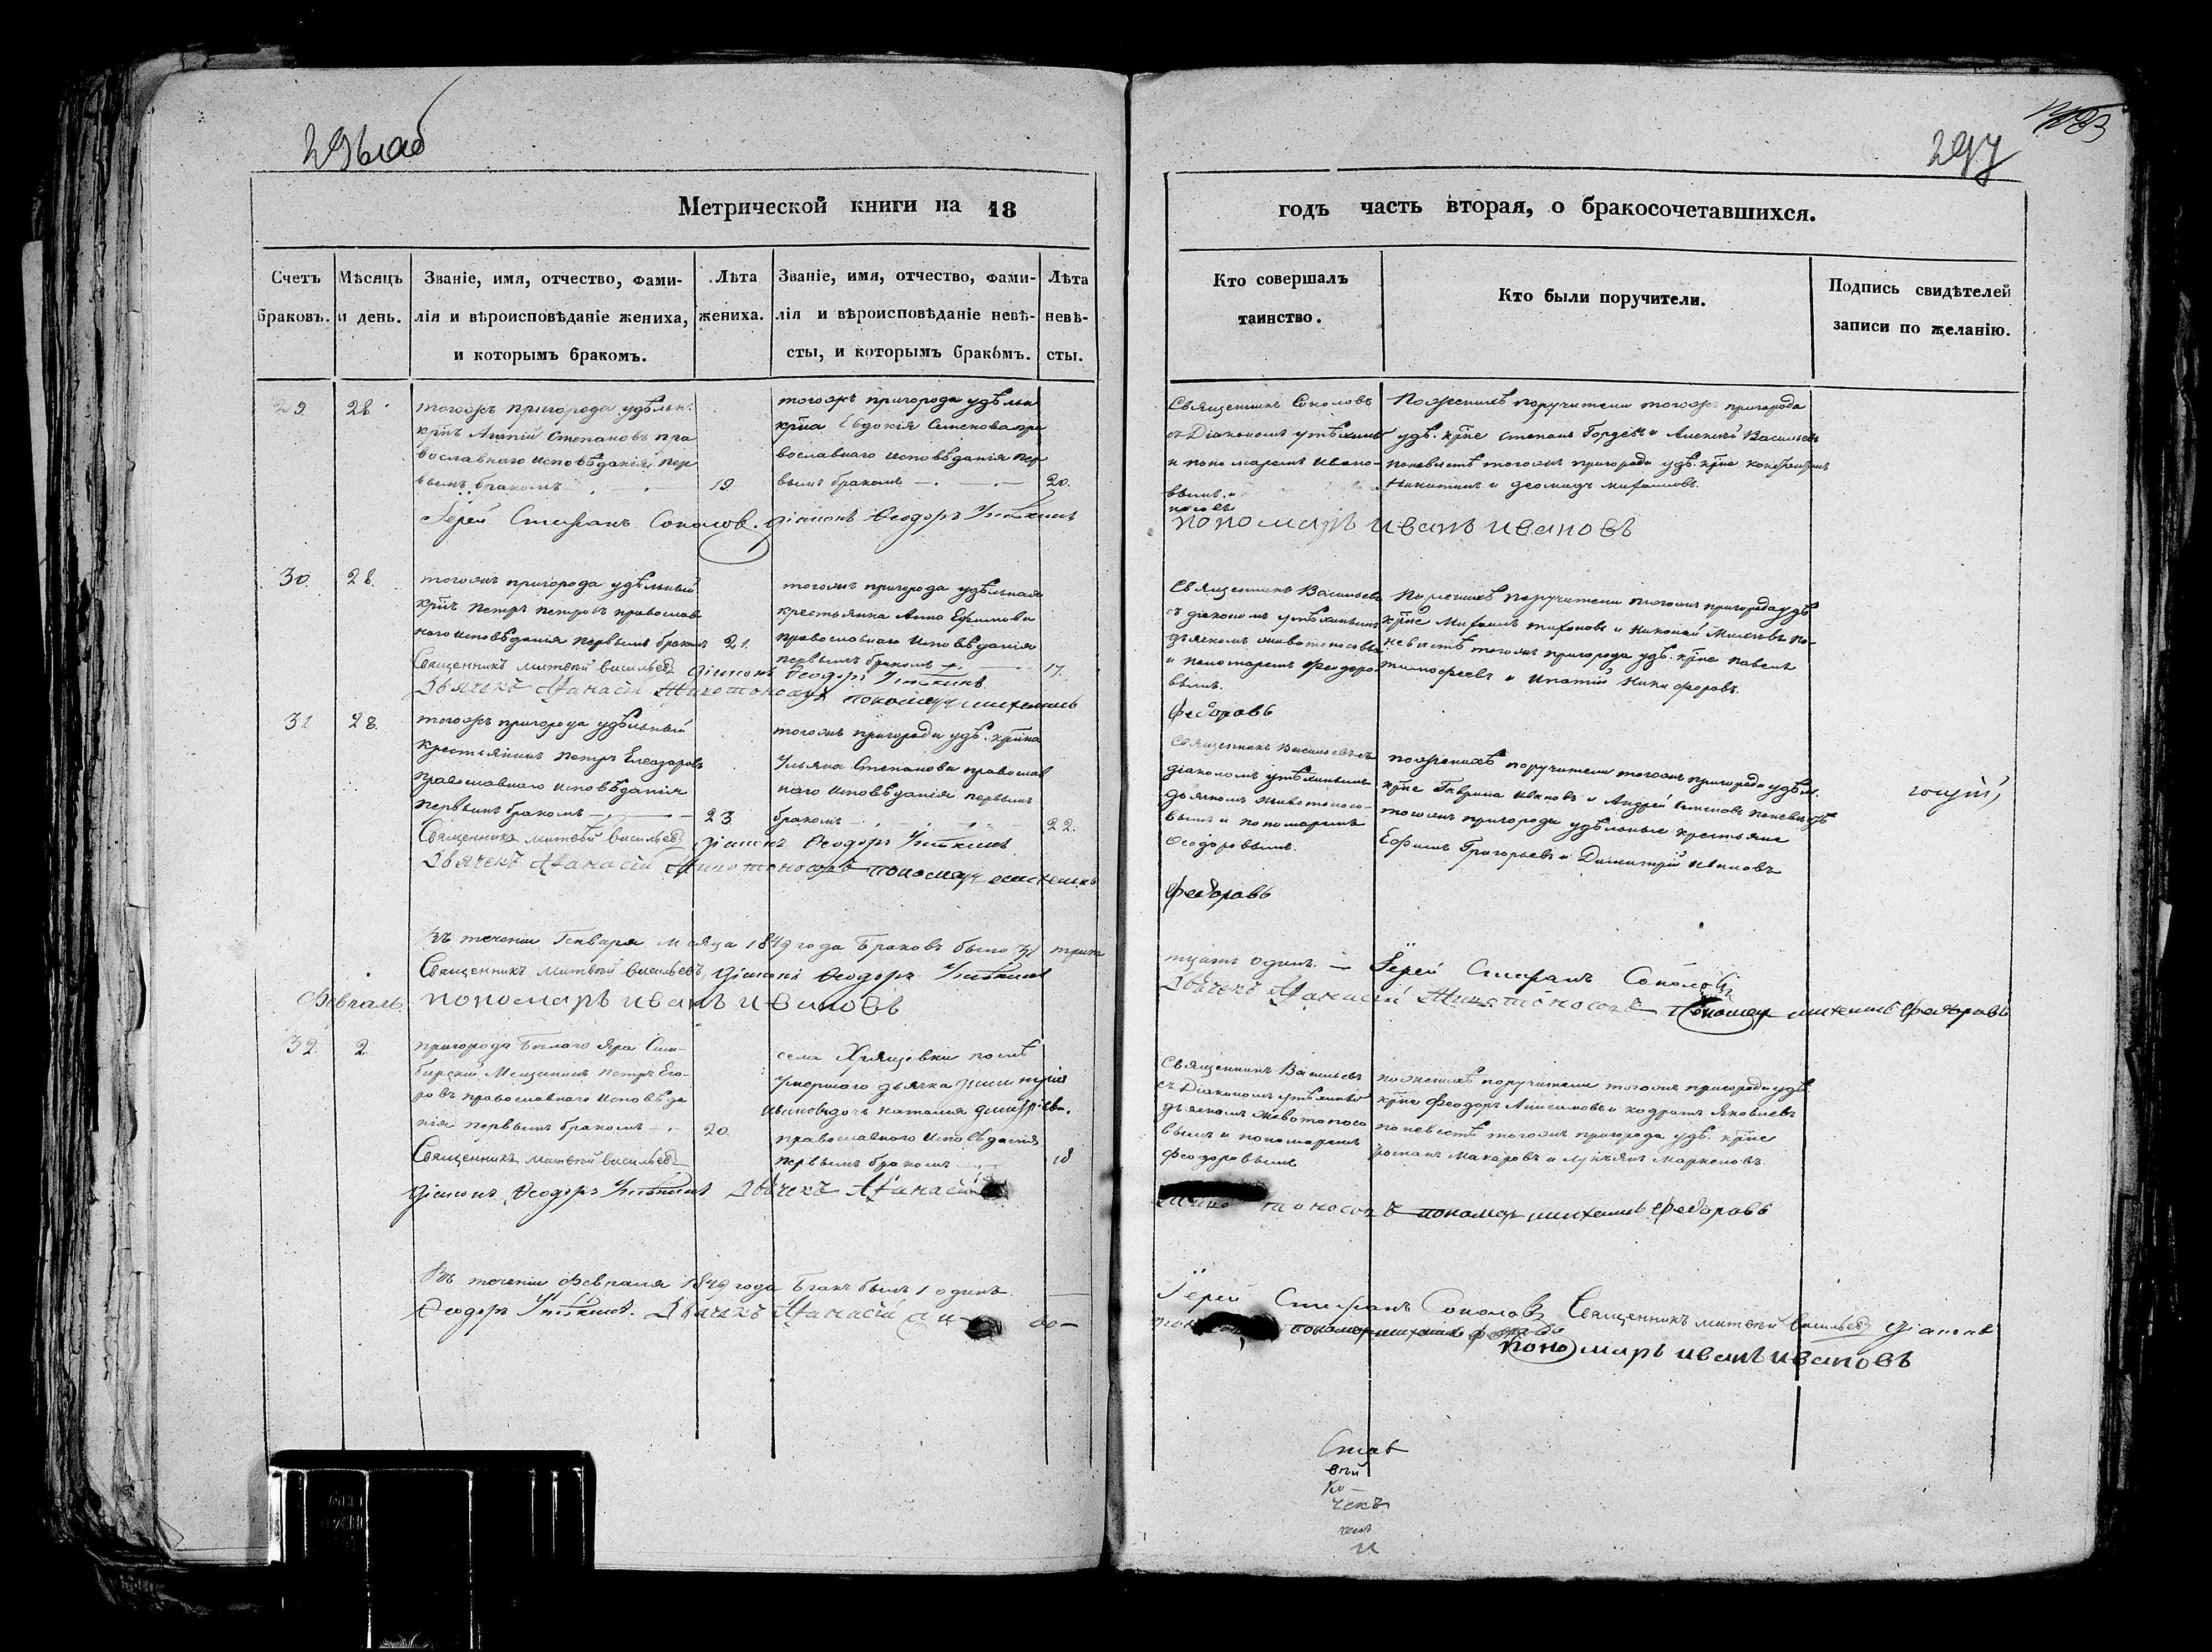 297
Метрической книги на 18
годъ часть вторая, о бракосочетавшихся.
Счетъ браковъ.
Мѣсяцъ и день.
Званіе, имя, отчество, фами-
лія и вѣроисповѣданіе жениха,
и которымъ бракомъ.
Лѣта
жениха.
Званіе, имя, отчество, фами-
лія и вѣроисповѣданіе невѣ-
сты, и которымъ бракомъ.
Лѣта
невѣ-
сты.
Кто совершалъ
таинство.
Кто были поручители.
Подпись свидѣтелей
записи по желанію.
29.
28
тогожъ пригорода удѣльн.
крнъ Степановъ пра
вославнаго исповѣданія пер
вымъ бракомъ
19
тогожъ пригорода удѣльн
крна Евдокія Семенова пра
вославнаго исповѣданія пер
вымъ бракомъ
20.
Священникъ Соколовъ
съ Діакономъ Утѣхинымъ
и пономаремъ Ивано-
вымъ.
По женихѣ поручители тогожъ пригорода
удѣ. крне Степанъ Гордѣевъ и Алексѣй Васильевъ
по невѣстѣ тогожъ пригорода удѣ. крне
Никитинъ и Деомидъ Михайловъ.
Іерей Стефанъ Соколов. Діаконъ Ѳеодоръ Утѣхинъ
пономарь иванъ ивановъ
30
28.
тогожъ пригорода удѣльный
крнъ Петръ Петровъ православ
наго исповѣданія первымъ бракомъ
21.
тогожъ пригорода удѣльная
крестьянка Анна Ефимова
православнаго исповѣданія
первымъ бракомъ
17.
Священникъ Васильевъ
съ діакономъ Утѣхинымъ
дьячкомъ Животоносовымъ
и пономаремъ Феодоро-
вымъ.
По женихѣ поручители тогожъ пригорода удѣ
крне Михаилъ Тихоновъ и Николай по-
невѣстѣ тогожъ пригорода удѣ. крне Павелъ
Тимофеевъ и Ипатій Никифоровъ.
Священникъ матвѣй васильевъ Діаконъ Ѳеодоръ Утѣхинъ
Дьячекъ Афанасій Животоносовъ пономарь михаилъ
Федоровъ
31
28.
тогожъ пригорода удѣльный
крестьянинъ Петръ Елеазаровъ
православнаго исповѣданія
первымъ бракомъ
23
тогожъ пригорода удѣ. крнка
Ульяна Степанова православ
наго исповѣданія первымъ
бракомъ
22.
Священникъ Васильевъ съ
діакономъ Утѣхинымъ
дьячкомъ Животоносо-
вымъ и пономаремъ
Феодоровымъ.
по женихѣ поручители тогожъ пригорода удѣл.
крне Гаврила Ивановъ и Андрей Семеновъ по невѣстѣ
тогожъ пригорода удѣльные крестьяне
Ефимъ Григорьевъ и Димитрій Ивановъ
Священникъ матвѣй васильевъ Діаконъ Ѳеодоръ Утѣхинъ
Дьячекъ Афанасій Животоносовъ пономарь михаилъ
Федоровъ
Въ теченіи Генваря мсяца 1849 года Браковъ было 31 трит
цать одинъ. — Іерей Стефанъ Соколовъ
Священникъ матвѣй васильевъ Діаконъ Ѳеодоръ Утѣхинъ
Дьячекъ Афанасій Животоносовъ пономарь михаилъ Федоровъ
пономарь иванъ ивановъ
Февраль.
32.
2.
пригорода Бѣлаго Яра Сим-
бирскій Мещанинъ Петръ Его-
ровъ православнаго исповѣда
нія первымъ бракомъ
20.
села Хрящевки послѣ
умершаго дьячка Димитрія
Иванова дочь Наталия Дмитріева.
православнаго исповѣданія
первымъ бракомъ
18
Священникъ Васильевъ
съ Діакономъ Утѣхинымъ
дьячкомъ Животоносо
вымъ и пономаремъ
Феодоровымъ
по женихѣ поручители тогожъ пригорода удѣ
крне Феодоръ Анисимовъ и Кодратъ Яковлевъ
по невестѣ тогожъ пригорода удѣ. крне
Романъ Макаровъ и Лукьянъ Маркеловъ.
Священникъ матвѣй васильевъ
Діаконъ Ѳеодоръ Утѣхинъ Дьячекъ Афанасій
Живо тоносовъ пономарь михаилъ Федоровъ
Въ теченіи Февраля 1849 года Бракъ былъ 1 одинъ.
Іерей Стефанъ Соколовъ Священникъ матвѣй васильевъ Діаконъ
Ѳеодоръ Утѣхинъ. Дьячекъ Афанасій
пономарь михаилъ
пономарь иванъ ивановъ